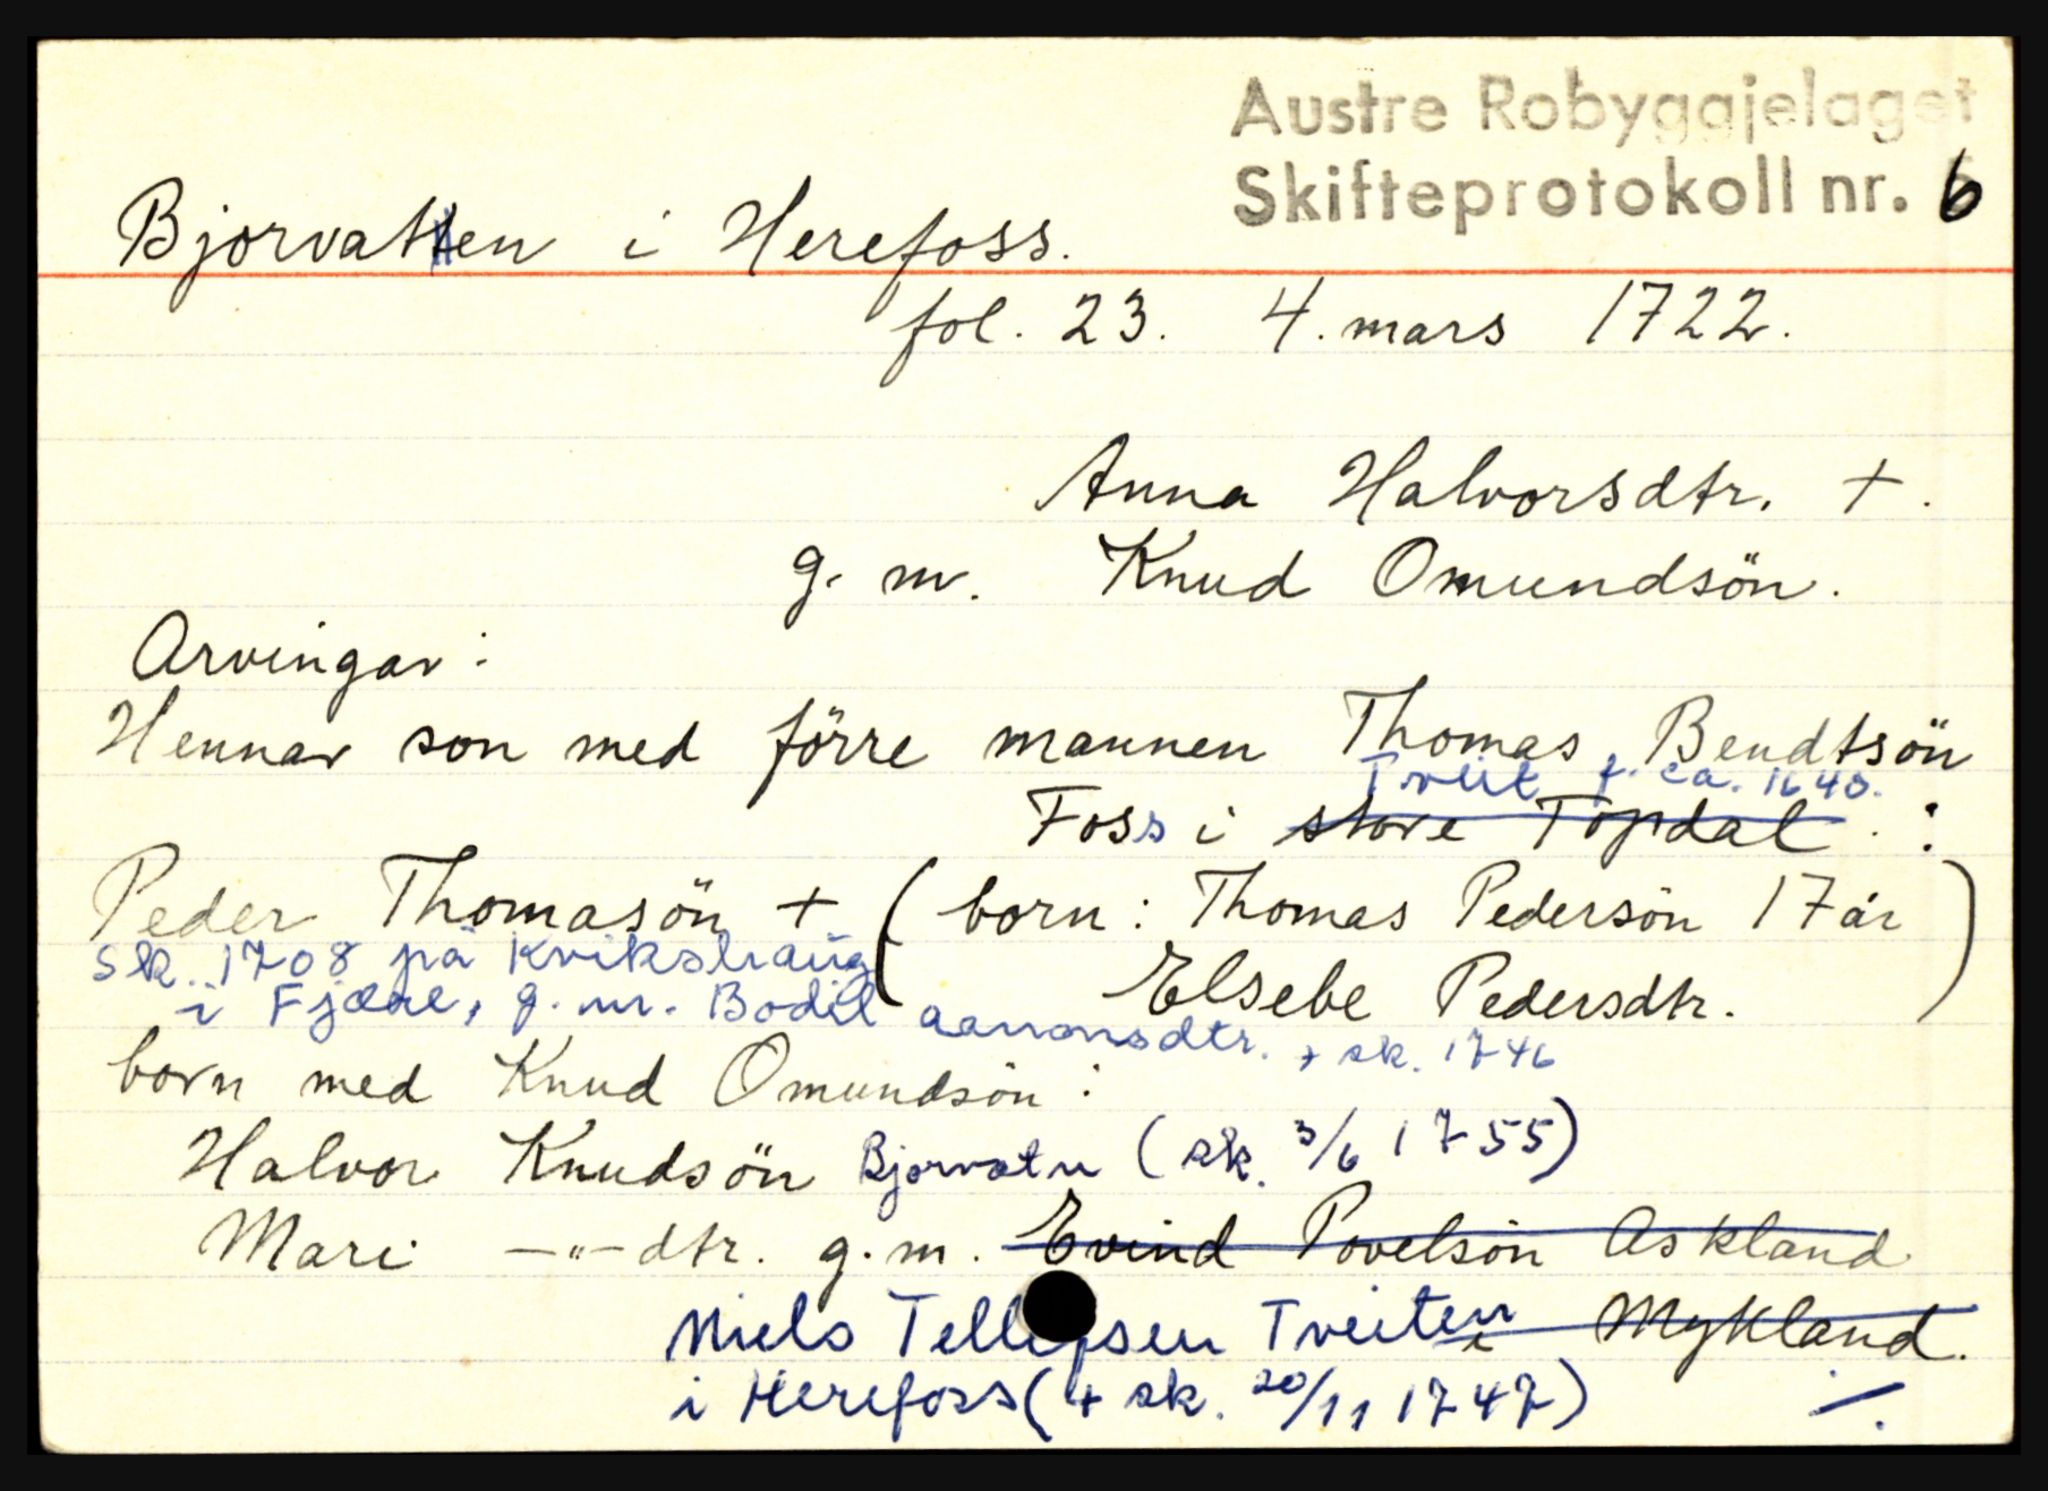 Austre Robyggjelaget
Skifteprotokoll nr. 6
Bjorvatten i Herefoss.
fol. 23. 4. mars 1722.
Anna Halvorsdtr. +.
g. m. Knud Omundsön.
Arvingar:
Hennar son med förre mannen Thomas Bendtsön
Tveit f. ca. 1640.
Foss i store Topdal. :
Peder Thomasön + ( born: Thomas Pedersön 17 år )
sk. 1708 på Kvikshaug ( Elsebe Pedersdtr.
i Fjære, g. m. Bodil Aanonsdtr. + sk. 1746
born med Knud Omundsön:
Halvor Knudsön Bjorvatn (sk. 3/6 1755)
Mari —"— dtr. g. m. Evind Povelsön Askland
Niels Tellefsen Tveiten i Mykland.
i Herefoss (+ sk. 20/11 1747) ./.